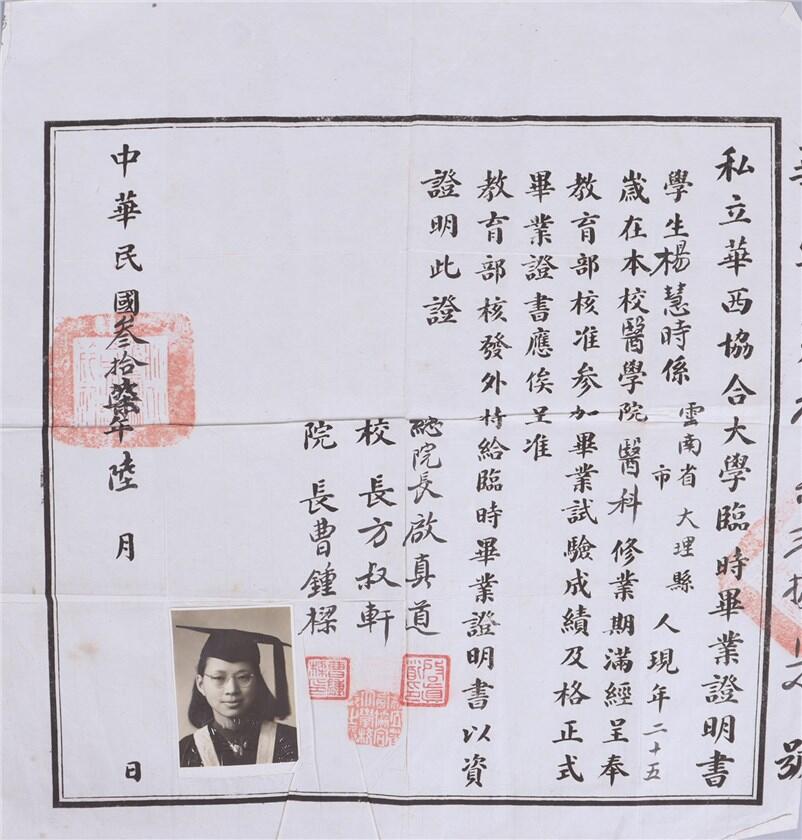 私立華西協合大學臨時畢業證明書
學生楊慧時係雲南省大理縣
市
人現年二十五
歲在本校醫學院醫科修業期滿經呈奉
教育部核准參加畢業試驗成績及格正式
畢業證書應俟呈准
教育部核發外特給臨時畢業證明書以資
證明此證
總院長啟真道
校長方叔軒
院長曹鍾樑
中華民國叁拾柒年陸月日
號